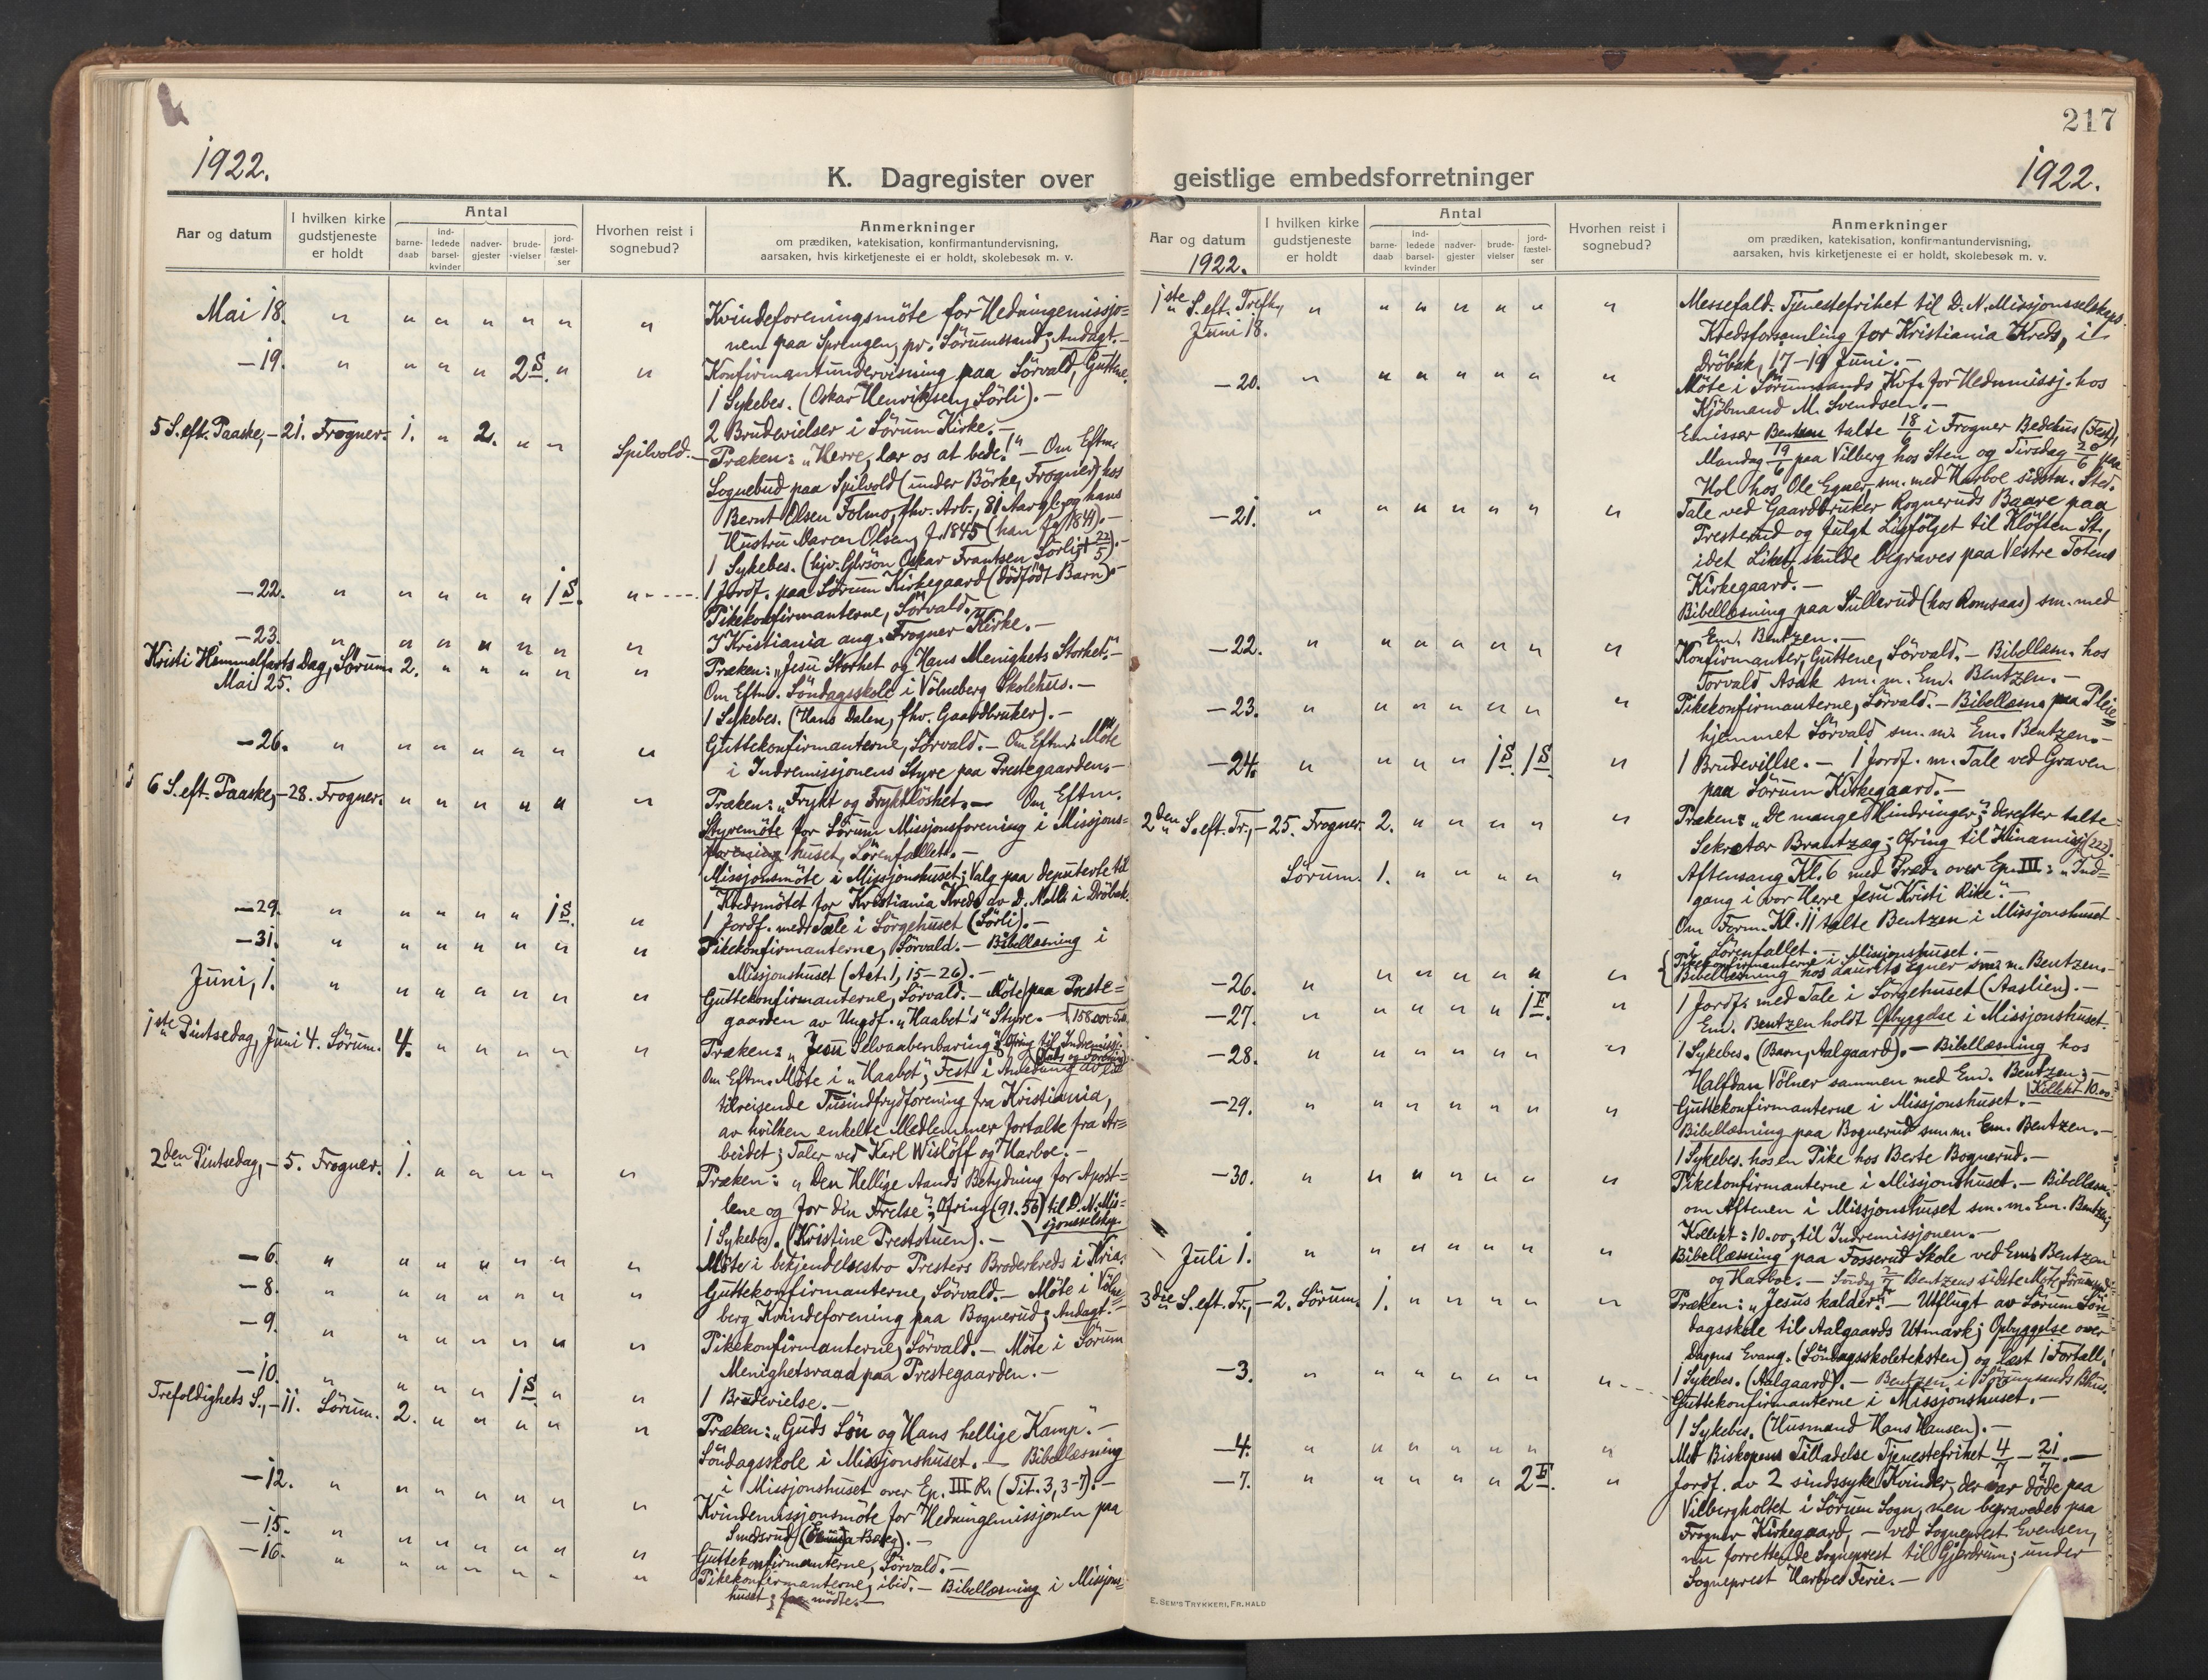 217
1922.
1922.
K. Dagregister over geistlige embedsforretninger
Aar og datum
I hvilken kirke gudstjeneste er holdt
Antal
barne-daab
ind-ledede barsel-kvinder
nadver-gjester
brude-vielser
jord-fæstel-ser
Hvorhen reist i sognebud?
Anmerkninger
om prædiken, katekisation, konfirmantundervisning,
aarsaken, hvis kirketjeneste ei er holdt, skolebesøk m. v.
Mai 18. " " " " " " " Kvindeforeningsmöte for Hedningemissjo=
nen paa Sprengen, pr. Sörumsand; Andagt.-
-19. " " " " 2 S. " " Konfirmantundervisning paa Sörvald, Guttene.
1 Sykebes. (Oskar Henriksen, Sörli).-
2 Brudevielser i Sörum Kirke.-
5 S. eft. Paaske,-21. Frogner. 1. " 2. " " Spilvold.- Præken: "Herre, lær os at bede!" - Om Eftm.
Sognebud paa Spilvold (under Börke, Frogner) hos
Bernt Olsen Folmo, fhv. Arb., 81 Aar gl. og hans
Hustru Maren Olsen, f. 1845 (han fg. 1841).-
1 Sykebes. (hjv. Glvsön Oskar Frantsen Sörli, † 22/5).-
-22. " " " " " 1 S. " ---- 1 Jordf. paa Sörum Kirkegaard (dödfödt Barn).-
Pikekonfirmanterne, Sörvald.-
-23. " " " " " " " I Kristiania ang. Frogner Kirke.-
Kristi Himmelfarts Dag, Mai 25. Sörum. 2. " " " " " Præken: "Jesu Storhet og Hans Menighets Storhet."-
Om Eftm. Söndagsskole i Völneberg Skolehus.-
1 Sykebes. (Hans Dalen, fhv. Gaardbruker).-
-26. " " " " " " " Guttekonfirmanterne, Sörvald.- Om Eftm. Möte
i Indremissjonens Styre paa Prestegaarden.-
6 S. eft. Paaske,-28. Frogner. " " " " " " Præken: "Frykt og Fryktlöshet.- Om Eftm.
Styremöte for Sörum Missjonsforening i Missjons=
huset, Lörenfallet.-
Missjonsmöte i Missjonshuset; Valg paa deputerte til
Kredsmötet for Kristiania Kreds av D. N. M. i Dröbak.
-29. " " " " " 1 S. " 1 Jordf. med Tale i Sörgehuset (Sörli).-
-31. " " " " " " " Pikekonfirmanterne, Sörvald.- Bibellæsning i
Missjonshuset (Act. 1, 15-26).-
Juni, 1. " " " " " " " Guttekonfirmanterne, Sörvald.- Möte paa Preste=
gaarden av Ungdf. "Haabet's" Styre.-
1ste Pintsedag, Juni 4. Sörum. 4. " " " " " Præken: "Jesu Selvaabenbaring"; Ofring til Indremissj.
Om Eftm. Möte i "Haabet"; Fest i Anledning av en
tilreisende Tusindfrydforening fra Kristiania,
av hvilken enkelte Medlemmer fortalte fra Ar=
beidet; Taler ved Karl Wislöff og Harboe.-
2den Pintsedag,-5. Frogner. 1. " " " " " Præken: "Den Hellige Aands Betydning for Apost=
lene og for din Frelse"; Ofring (91.56) til D. N. Mis=
sjonsselskap.
1 Sykebes. (Kristine Preststuen).-
-6. " " " " " " " Möte i bekjendelsestro Presters Broderkreds i Kria.
-8. " " " " " " " Guttekonfirmanterne, Sörvald.- Möte i Völne=
berg Kvindeforening paa Bognerud; Andagt.-
-9. " " " " " " " Pikekonfirmanterne, Sörvald.- Möte i Sörum
Menighetsraad paa Prestegaarden.-
-10. " " " " 1 S. " " 1 Brudevielse.-
Trefoldighets S.,-11. Sörum. 2. " " " " " Præken: "Guds Sön og Hans hellige Kamp."-
Söndagsskole i Missjonshuset.- Bibellæsning
i Missjonshuset over Ep. III R. (Tit. 3, 3-7).-
-12. " " " " " " " Kvindemissjonsmöte for Hedningemissjonen paa
Smedsrud.-
-15. " " " " " " " Guttekonfirmanterne, Sörvald.-
-16. " " " " " " " Pikekonfirmanterne, ibid.- Bibellæsning i Missjons=
huset; faa mödte.-
Aar og datum
1922.
I hvilken kirke gudstjeneste er holdt
Antal
barne-daab
ind-ledede barsel-kvinder
nadver-gjester
brude-vielser
jord-fæstel-ser
Hvorhen reist i sognebud?
Anmerkninger
om prædiken, katekisation, konfirmantundervisning,
aarsaken, hvis kirketjeneste ei er holdt, skolebesøk m. v.
1ste S. eft. Trefh., Juni 18. " " " " " " " Messefald. Tjenestefrihet til D. N. Missjonsselskaps
Kredsforsamling for Kristiania Kreds, i
Dröbak, 17-19 Juni.-
-20. " " " " " " " Möte i Sörumsands Kvf. for Hednmissj. hos
Kjöbmand M. Svendsen.-
Emissær Bentzen talte 18/6 i Frogner Bedehus (Fest),
Mandag 19/6 paa Vilberg hos Sten og Tirsdag 20/6 paa
Hol hos Ole Egner sm. med Harboe sidstn. Sted.
-21. " " " " " " " Tale ved Gaardbruker Rogneruds Baare paa
Presterud og fulgt Ligfölget til Klöften St.,
idet Liket skulde begraves paa Vestre Totens
Kirkegaard.-
Bibellæsning paa Sullerud (hos Romsaas) sm. med
Em. Bentzen.-
-22. " " " " " " " Konfirmanter, Guttene, Sörvald.- Bibellæsn. hos
Torvald Asak sm. m. Em. Bentzen.-
-23. " " " " " " " Pikekonfirmanterne, Sörvald.- Bibellæsn. paa Pleie=
hjemmet Sörvald sm. m. Em. Bentzen.-
-24. " " " " 1 S. 1 S. " 1 Brudevillse.- 1 Jordf. m. Tale ved Graven
paa Sörum Kirkegaard.-
2den S. eft. Tr.,-25. Frogner. 2. " " " " " Præken: "De mange Hindringer"; derefter talte
Sekretær Brantzæg; Ofring til Kinamisj (222).
Sörum. 1. " " " " " Aftensang Kl. 6 med Præd. over Ep. III: "Ind=
gang i vor Herre Jesu Kristi Rike."-
Om Form. Kl. 11 talte Bentzen i Missjonshuset
i Lörenfallet.-
Pikekonfirmanterne i Missjonshuset.-
-26. " " " " " " " Bibellæsning hos Laurits Egner sm. m. Bentzen.-
-27. " " " " " 1 F. " 1 Jordf. med Tale i Sörgehuset (Aaslien).-
Em. Bentzen holdt Opbyggelse i Missjonshuset.
-28. " " " " " " " 1 Sykebes. (Barn, Aalgaard).- Bibellæsning hos
Halfdan Völner sammen med Em. Bentzen;-
Kollekt 10.00
-29. " " " " " " " Guttekonfirmanterne i Missjonshuset.-
Bibellæsning paa Bognerud sm. m. Em. Bentzen.-
1 Sykebes. hos en Pike hos Berte Bognerud.-
-30. " " " " " " " Pikekonfirmanterne i Missjonshuset.- Bibellæsn.
om Aftenen i Missjonshuset sm. m. Em. Bentzen;
Kollekt: 10.00, til Indremissjonen.-
Juli 1. " " " " " " " Bibellæsning paa Fosserud Skole ved Em. Bentzen
og Harboe.- Söndag 2/7 Bentzens sidste Möte,
3die S. eft. Tr.,-2. Sörum. 1. " " " " " Præken: "Jesus kalder."- Utflugt av Sörum Sön=
dagsskole til Aalgaards Utmark; Opbyggelse over
dagens Evang. (Söndagsskoleteksten) og læst 1 Fortell.
-3. " " " " " " " ---- 1 Sykebes. (Aalgaard).- Bentzen i Sörumsands Bhus.
Guttekonfirmanterne i Missjonshuset.-
1 Sykebes. (Husmand Hans Hansen).-
-4. " " " " " " " Met Biskopens Tilladelse Tjenestefrihet 4/7 - 21/7.-
-7. " " " " " 2 F. " Jordf. av 2 sindssyke Kvinder, der var döde paa
Vilbergholtet i Sörum Sogn, men begravedes paa
Frogner Kirkegaard,- ved Sogneprest Evensen,
nu forrettende Sogneprest til Gjerdrum; under
Sogneprest Harboes Ferie.-
E. SEM'S TRYKKERI, FR.HALD